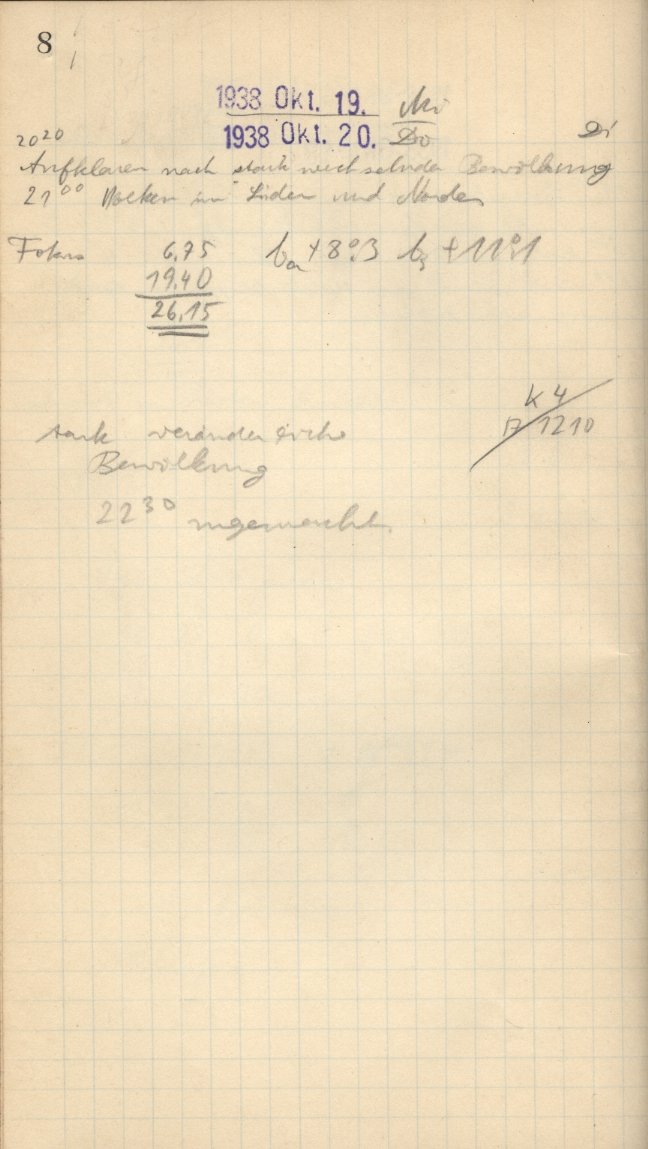 8
1938 Okt. 19. Mi
1938 Okt. 20. Do
20 20 Di
Aufklaren nach stark wechselnder Bewölkung
21 00 Wolken im Süden und Norden
Fokus 6,75 ta +8°.3 +11°.1
19,40
26,15
K 4
1210
stark veränderliche
Bewölkung
22 30 zugemacht.